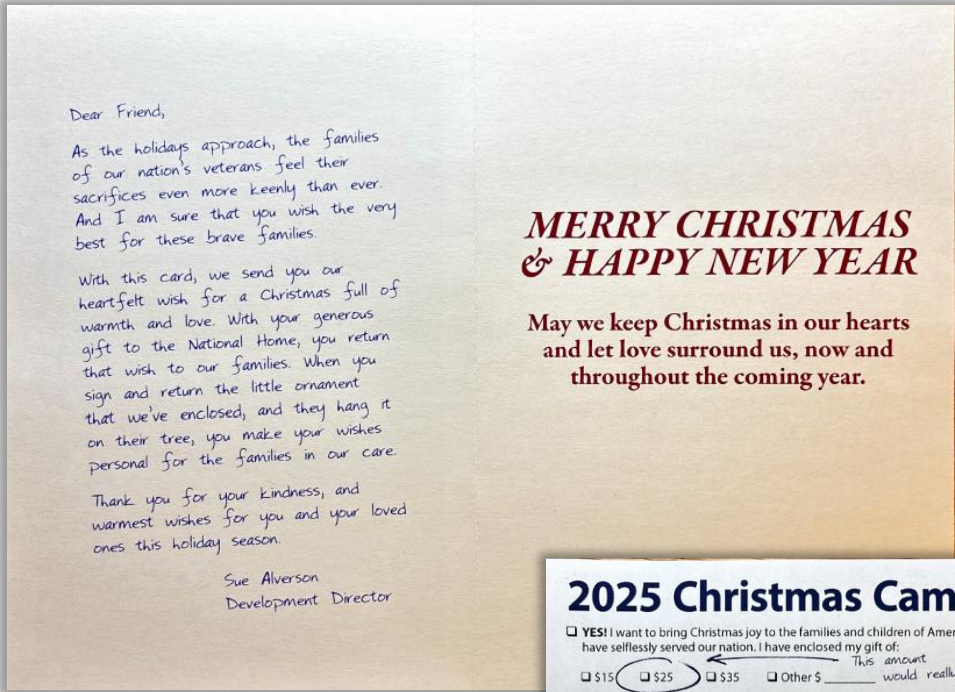 Dear Friend,
As the holidays approach, the families
of our nation's veterans feel their
sacrifices even more keenly than ever.
And I am sure that you wish the very
best for these brave families.
With this card, we send you our
heartfelt wish for a Christmas full of
warmth and love. With your generous
gift to the National Home, you return
that wish to our families. When you
sign and return the little ornament
that we've enclosed, and they hang it
on their tree, you make your wishes
personal for the families in our care.
Thank you for your kindness, and
warmest wishes for you and your loved
ones this holiday season.
Sue Alverson
Development Director
MERRY CHRISTMAS
& HAPPY NEW YEAR
May we keep Christmas in our hearts
and let love surround us, now and
throughout the coming year.
2025 Christmas Cam
❑ YES! I want to bring Christmas joy to the families and children of Amer
have selflessly served our nation. I have enclosed my gift of:
This amount
❑ $15 ❑ $25 ❑ $35 ❑ Other $ ________ would really